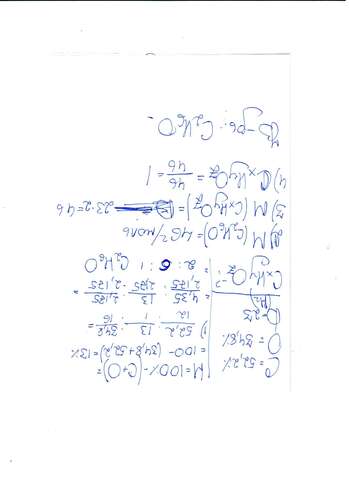 C = 52,2%
O = 34,8%
D = 23
(H₂)
CxHyOz - ?
H = 100% - (C+O) =
= 100 - (34,8 + 52,2) = 13%
1) 52,2/12 : 13/1 : 34,8/16 =
= 4,35/2,175 : 13/2,175 : 2,175/2,175 =
= 2 : 6 : 1 C₂H₆O
2) M (C₂H₆O) = 46 г/моль
3) M (CxHyOz) = 23·2 = 46
4) CxHyOz = 46/46 = 1
C₂H₆O -